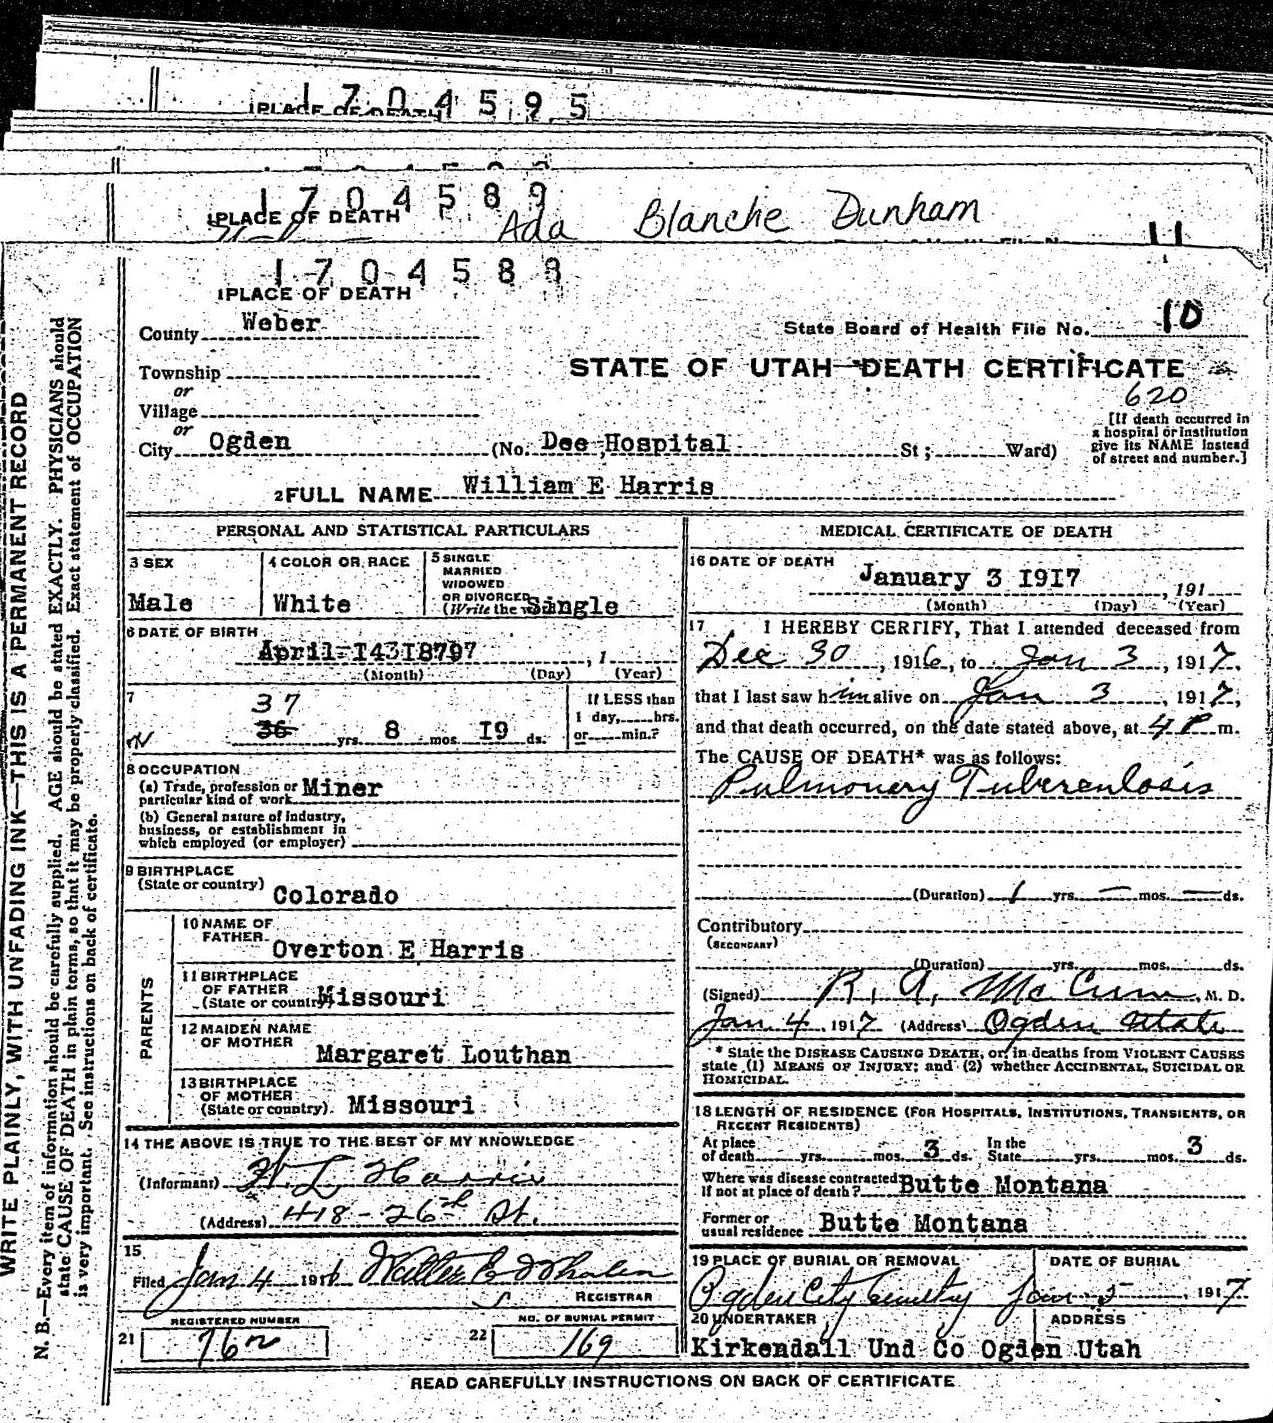 1704595
1 PLACE OF DEATH
1704589
1 PLACE OF DEATH
Ada Blanche Dunham
11
1704588
1 PLACE OF DEATH
County Weber
State Board of Health File No. 10
Township
or
Village
or
City Ogden
STATE OF UTAH—DEATH CERTIFICATE
620
(No. Dee Hospital St; Ward)
[If death occurred in
a hospital or institution
give its NAME instead
of street and number.]
2 FULL NAME William E Harris
PERSONAL AND STATISTICAL PARTICULARS
3 SEX
Male
4 COLOR OR RACE
White
5 SINGLE
MARRIED
WIDOWED
OR DIVORCED
(Write the w
Single
6 DATE OF BIRTH
April
(Month) (Day) (Year)
7
37
36 yrs. 8 mos. I9 ds.
If LESS than
1 day, hrs.
or min.?
8 OCCUPATION
(a) Trade, profession or
particular kind of work Miner
(b) General nature of industry,
business, or establishment in
which employed (or employer)
9 BIRTHPLACE
(State or country) Colorado
PARENTS
10 NAME OF
FATHER Overton E Harris
11 BIRTHPLACE
OF FATHER
(State or country) Missouri
12 MAIDEN NAME
OF MOTHER
Margaret Louthan
13 BIRTHPLACE
OF MOTHER
(State or country) Missouri
14 THE ABOVE IS TRUE TO THE BEST OF MY KNOWLEDGE
(Informant) W. L. Harris
(Address) 418-26th St.
15
Filed Jan 4 1916 Walter E Whalen
REGISTRAR
REGISTERED NUMBER
21
NO. OF BURIAL PERMIT
22 169
MEDICAL CERTIFICATE OF DEATH
16 DATE OF DEATH
January 3 I9I7, 191
(Month) (Day) (Year)
17 I HEREBY CERTIFY, That I attended deceased from
Dec 30, 1916, to Jan 3, 1917,
that I last saw him alive on Jan 3, 1917,
and that death occurred, on the date stated above, at 4 P m.
The CAUSE OF DEATH* was as follows:
Pulmonary Tuberculosis
(Duration) 1 yrs. — mos. — ds.
Contributory
(SECONDARY)
(Duration) yrs. mos. ds.
(Signed) R. A. McCune, M. D.
Jan 4, 1917 (Address) Ogden Utah
* State the DISEASE CAUSING DEATH, or, in deaths from VIOLENT CAUSES
state (1) MEANS OF INJURY; and (2) whether ACCIDENTAL, SUICIDAL OR
HOMICIDAL.
18 LENGTH OF RESIDENCE (FOR HOSPITALS, INSTITUTIONS, TRANSIENTS, OR
RECENT RESIDENTS)
At place
of death yrs. mos. 3 ds.
In the
State yrs. mos. 3 ds.
Where was disease contracted
if not at place of death? Butte Montana
Former or
usual residence Butte Montana
19 PLACE OF BURIAL OR REMOVAL
Ogden City Cemetery
DATE OF BURIAL
Jan 5, 1917
20 UNDERTAKER
ADDRESS
Kirkendall Und Co Ogden Utah
READ CAREFULLY INSTRUCTIONS ON BACK OF CERTIFICATE
WRITE PLAINLY, WITH UNFADING INK—THIS IS A PERMANENT RECORD
N. B.—Every item of information should be carefully supplied. AGE should be stated EXACTLY. PHYSICIANS should
state CAUSE OF DEATH in plain terms, so that it may be properly classified. Exact statement of OCCUPATION
is very important. See instructions on back of certificate.